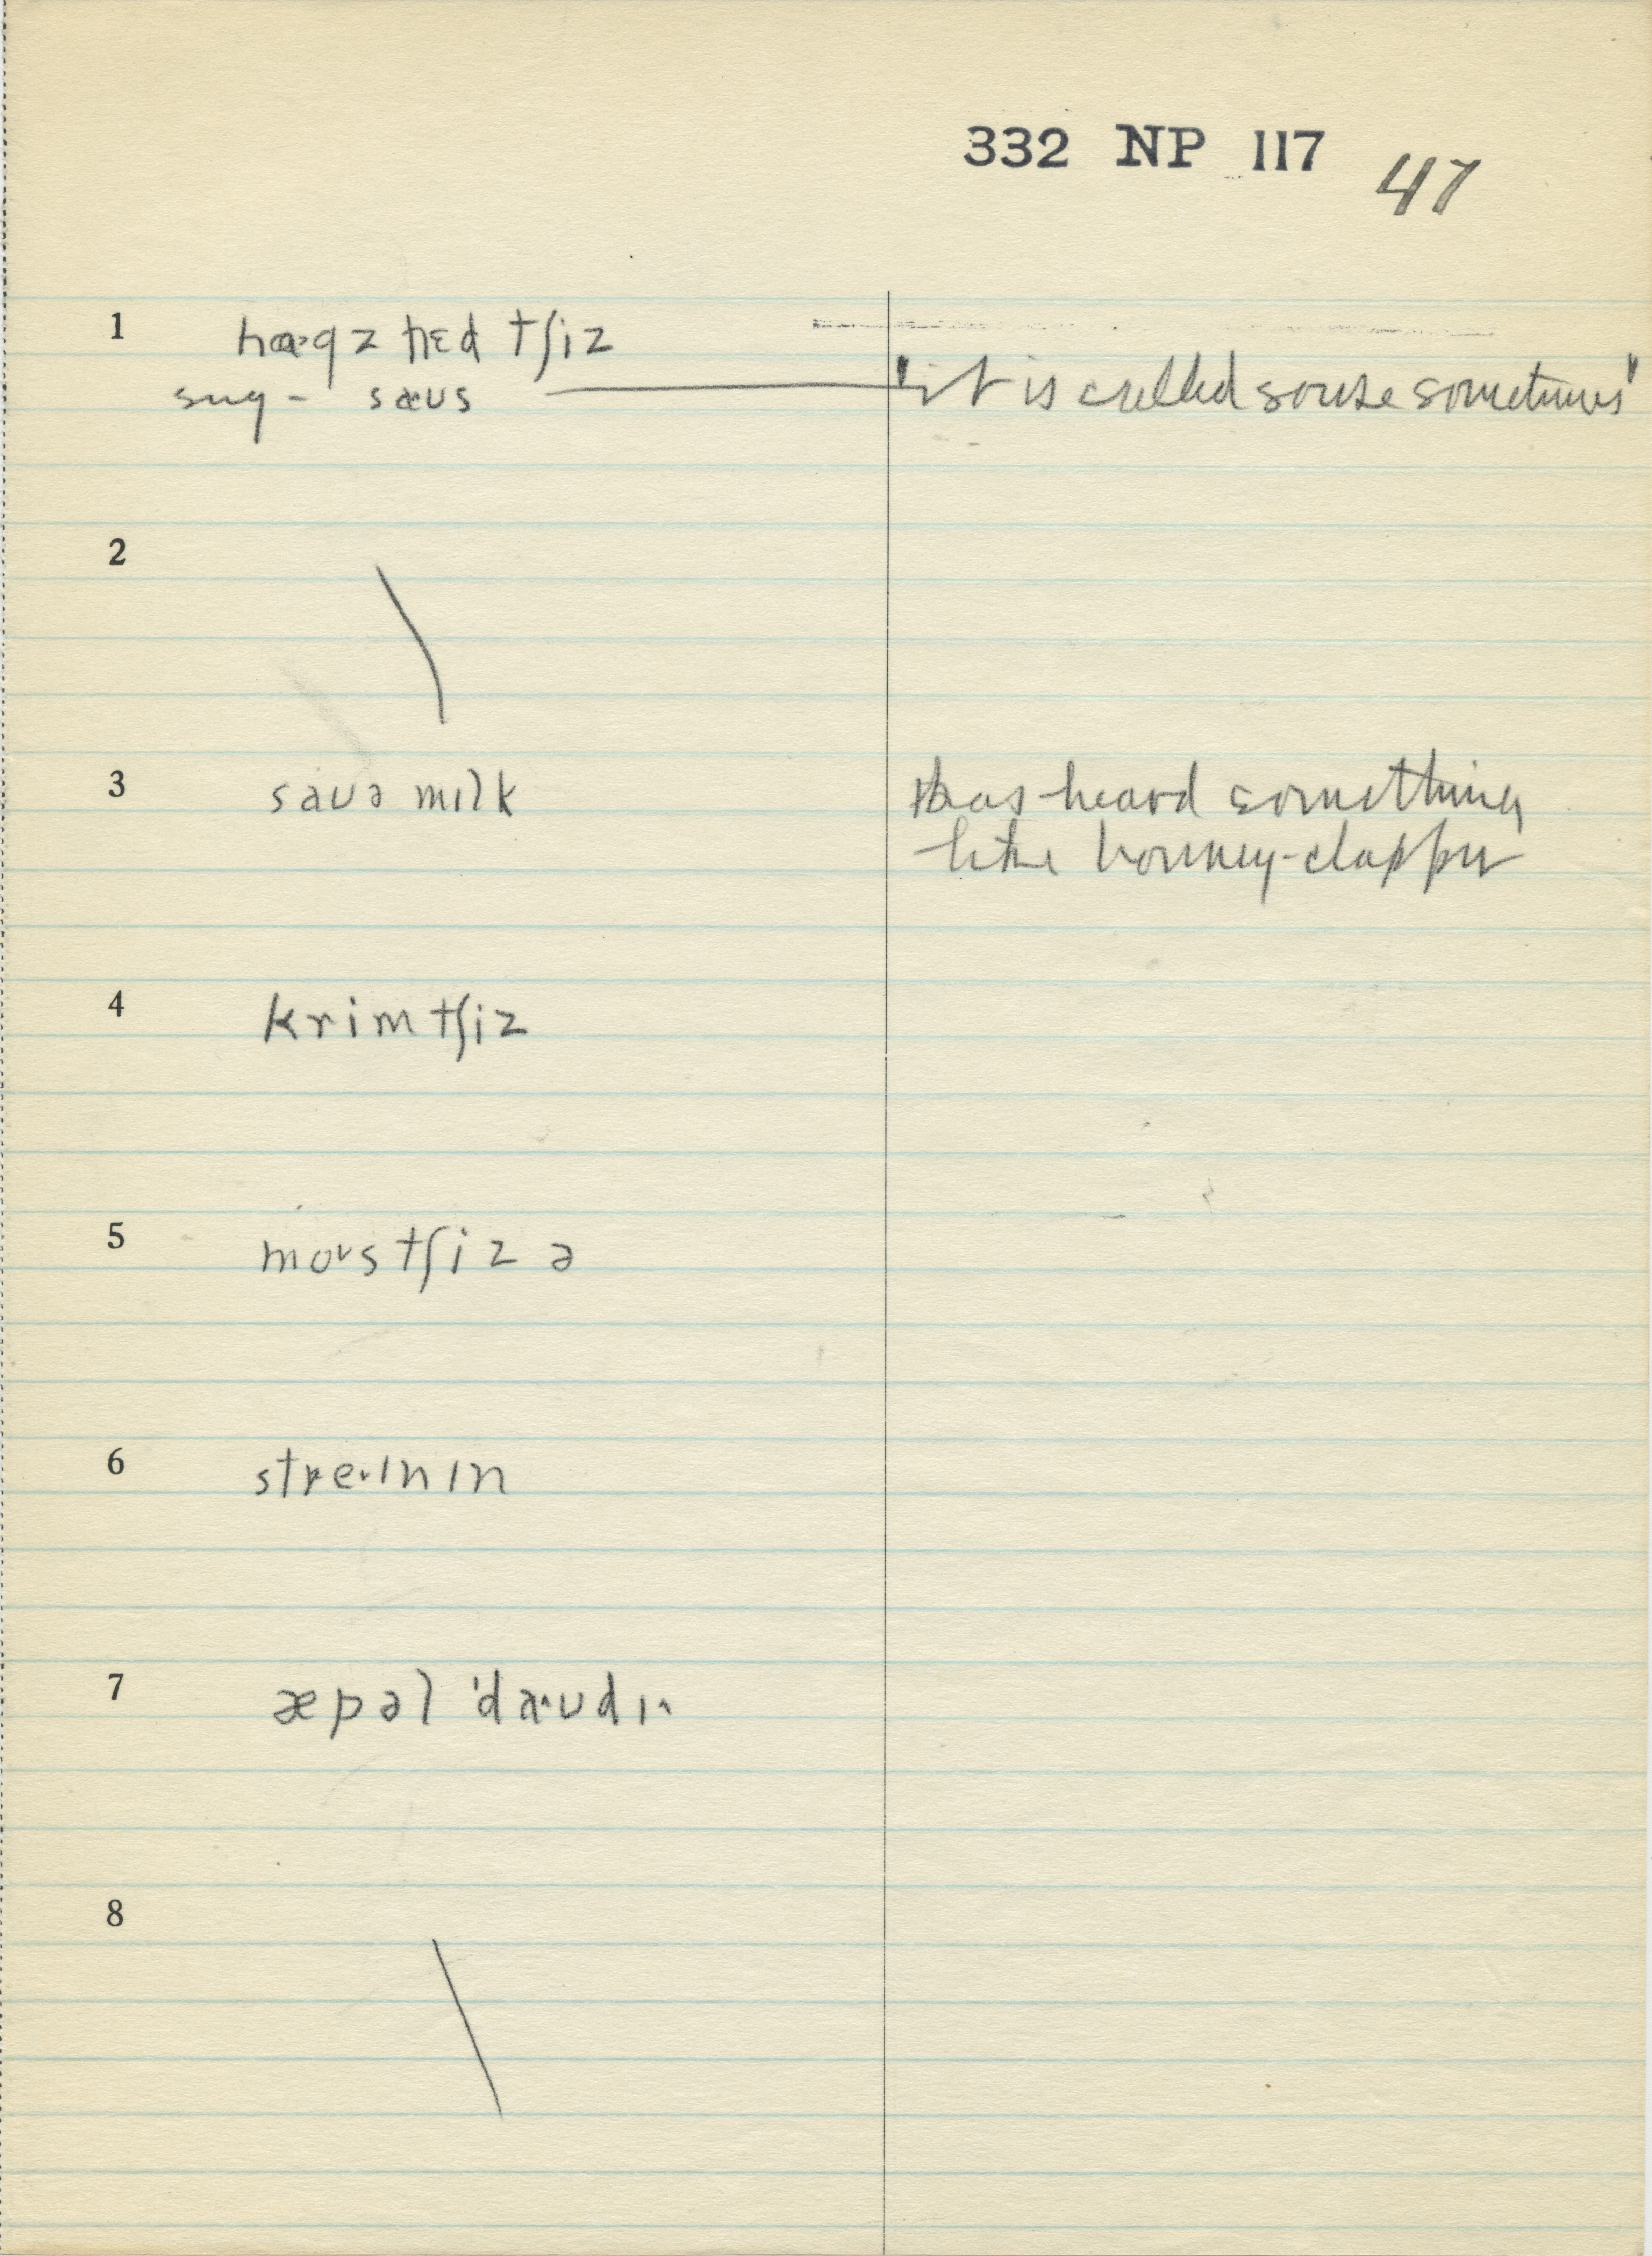 332 NP 117 47
1 hɑ·gz hɛd tʃiz
sug - sæus "it is called souse sometimes"
2
3 sauə mɪlk Has heard something
like bonney-clapper
4 krim tʃiz
5 moʊs tʃizə
6 stre·ɪnɪn
7 æpəl 'dæ·ʊdɪ^
8